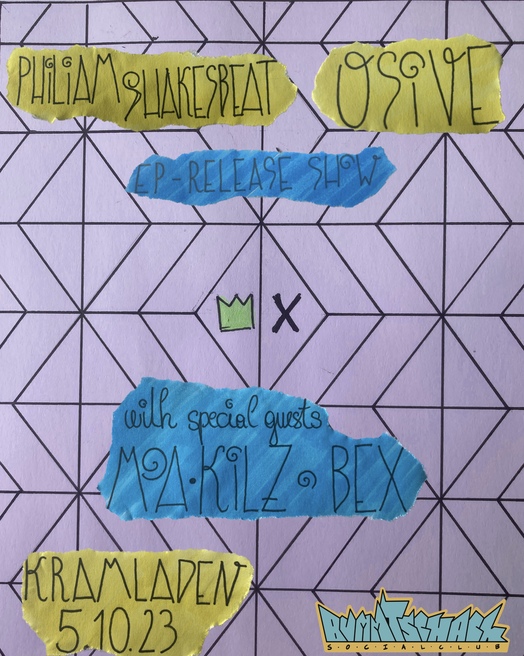 PHILIAM SHAKESBEAT OSIVE
EP-RELEASE SHOW
X
with special guests
MA·KILZ BEX
KRAMLADEN
5.10.23
RUMMTSCHACK
SOCIALCLUB